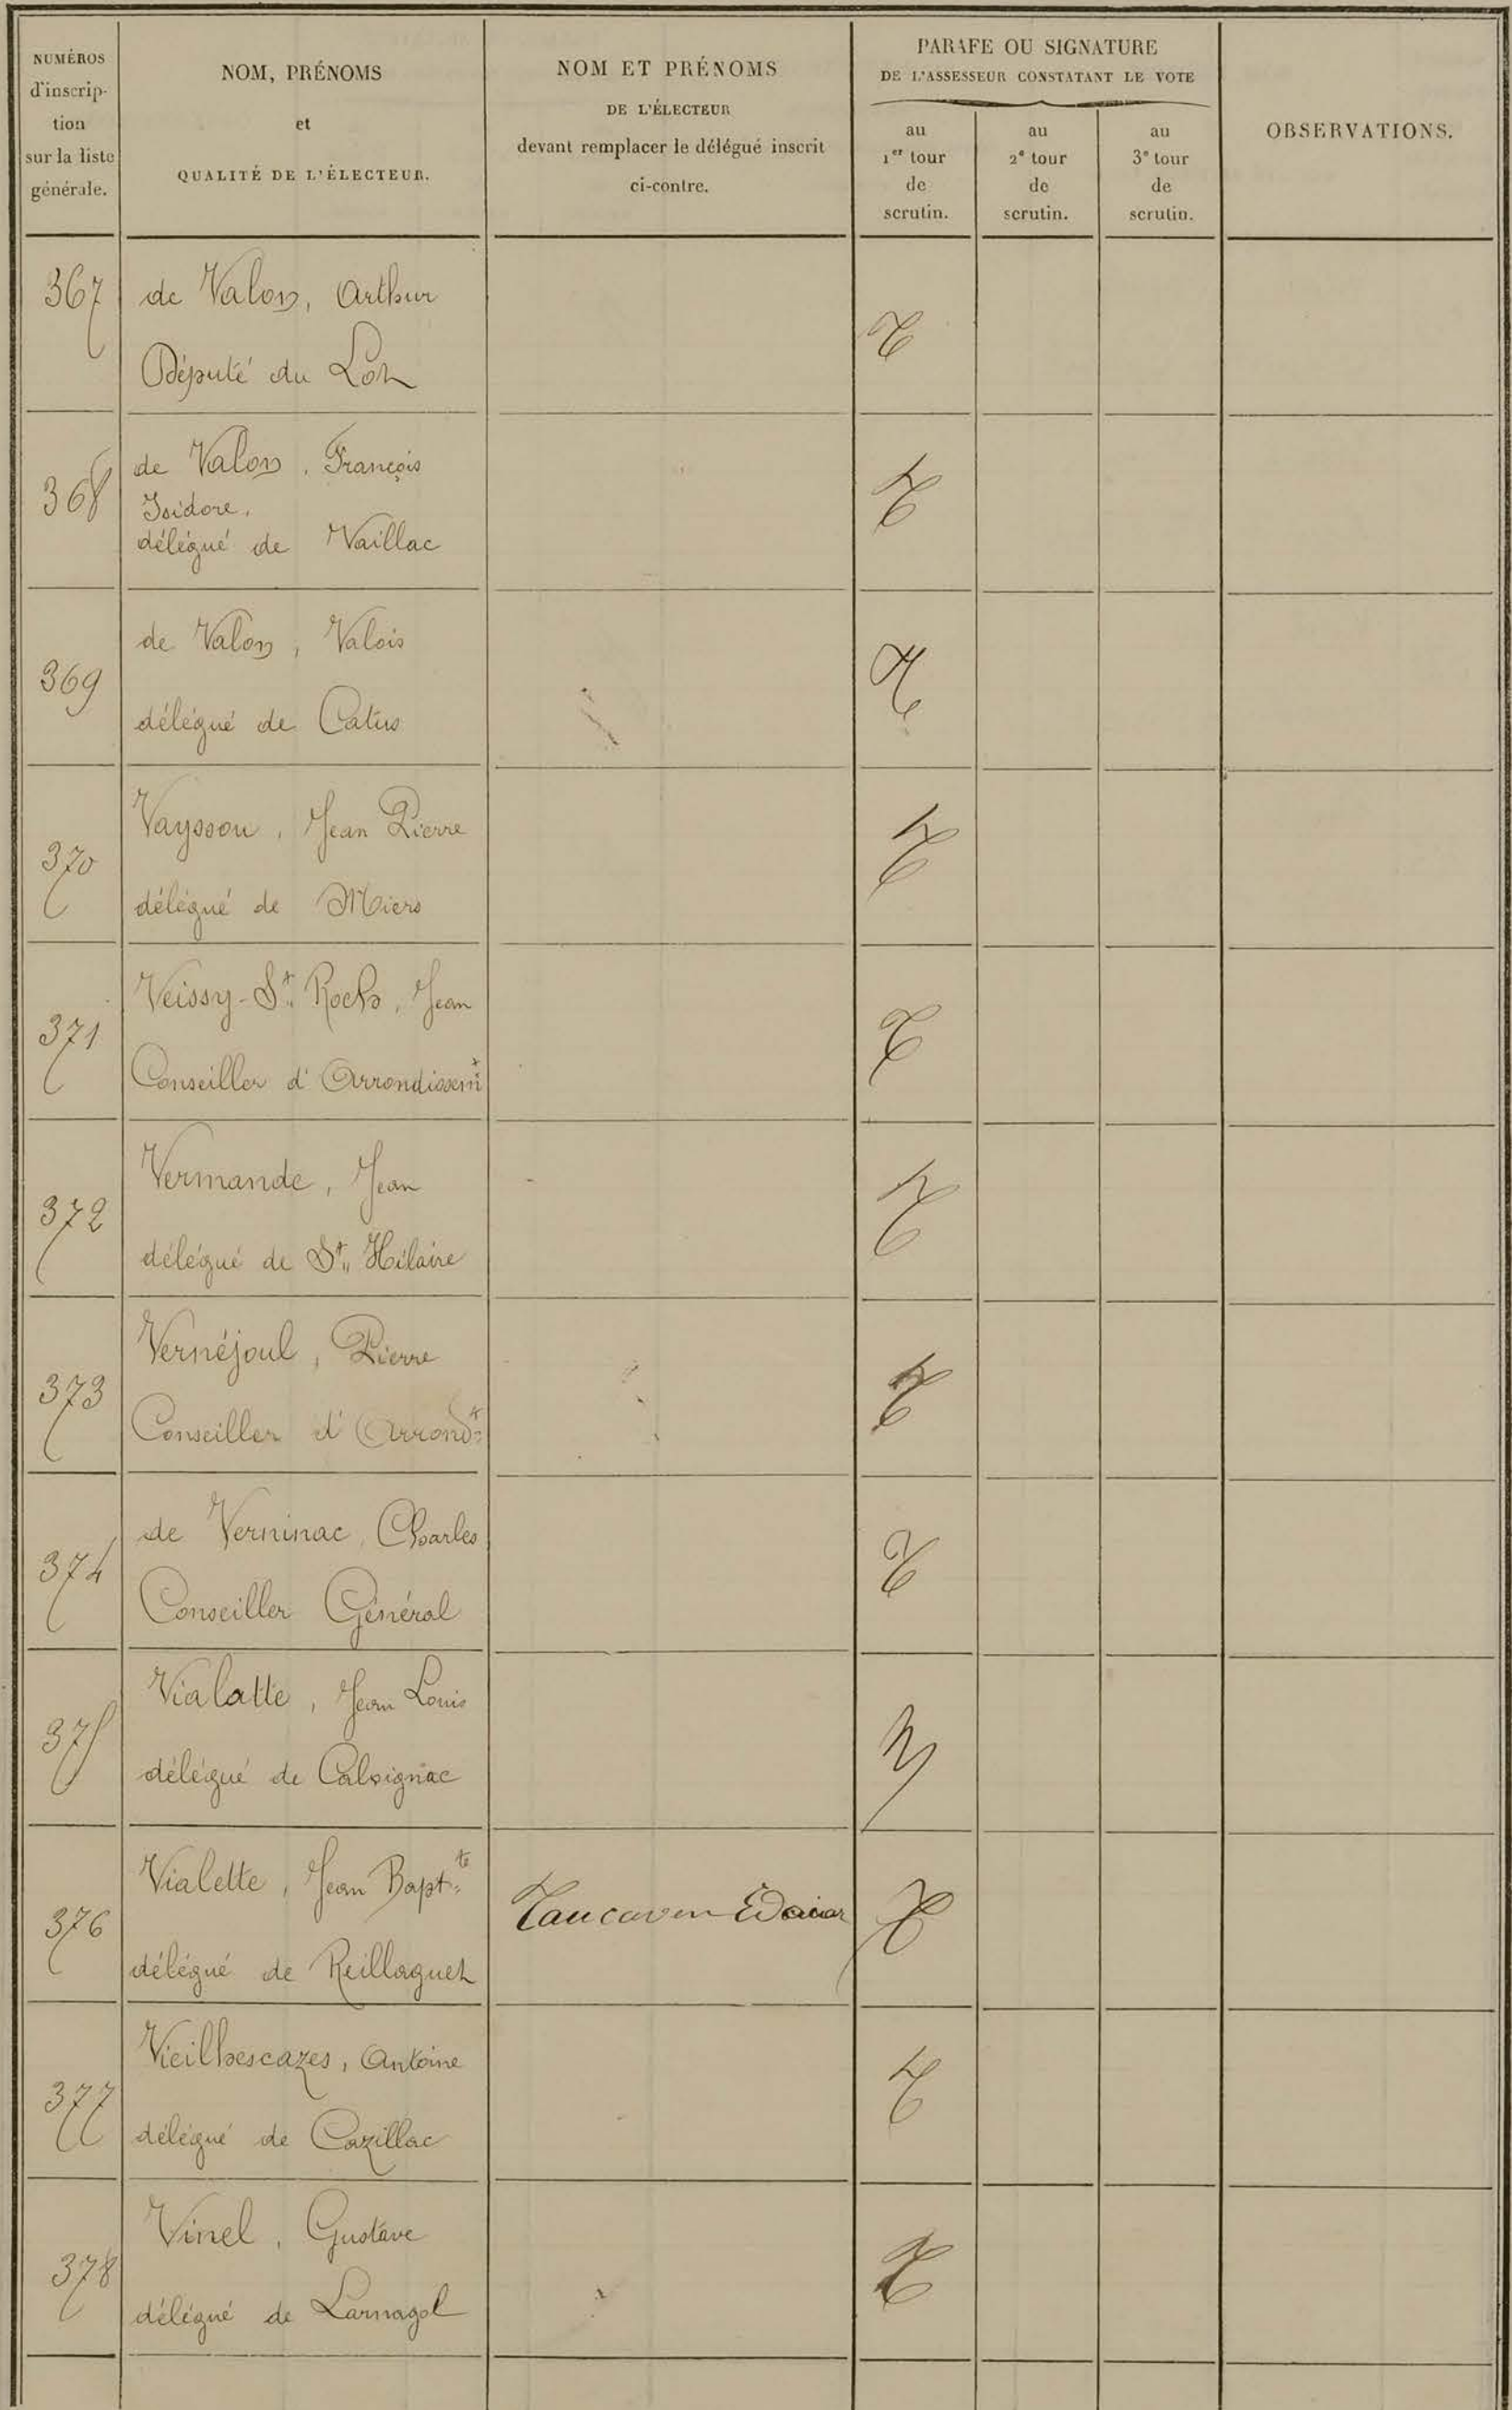 NUMÉROS
d'inscrip-
tion
sur la liste
générale.
NOM, PRÉNOMS
et
QUALITÉ DE L'ÉLECTEUR.
NOM ET PRÉNOMS
DE L'ÉLECTEUR
devant remplacer le délégué inscrit
ci-contre.
PARAFE OU SIGNATURE
DE L'ASSESSEUR CONSTATANT LE VOTE
au
1er tour
de
scrutin.
au
2e tour
de
scrutin.
au
3e tour
de
scrutin.
OBSERVATIONS.
367
de Valon, Arthur
Député du Lot
368
de Valon, François
Isidore.
délégué de Vaillac
369
de Valon, Valois
délégué de Catus
370
Vayssou, Jean Pierre
délégué de Miers
371
Veissy-St. Roch, Jean
Conseiller d'Arrondissemt
372
Vermande, Jean
délégué de St. Hilaire
373
Vernéjoul, Pierre
Conseiller d'Arrondt
374
de Verninac, Charles
Conseiller Général
375
Vialatte, Jean Louis
délégué de Calvignac
376
Vialette, Jean Bapte
délégué de Reillaguet
377
Vieilhescazes, Antoine
délégué de Cazillac
378
Vinel, Gustave
délégué de Larnagol